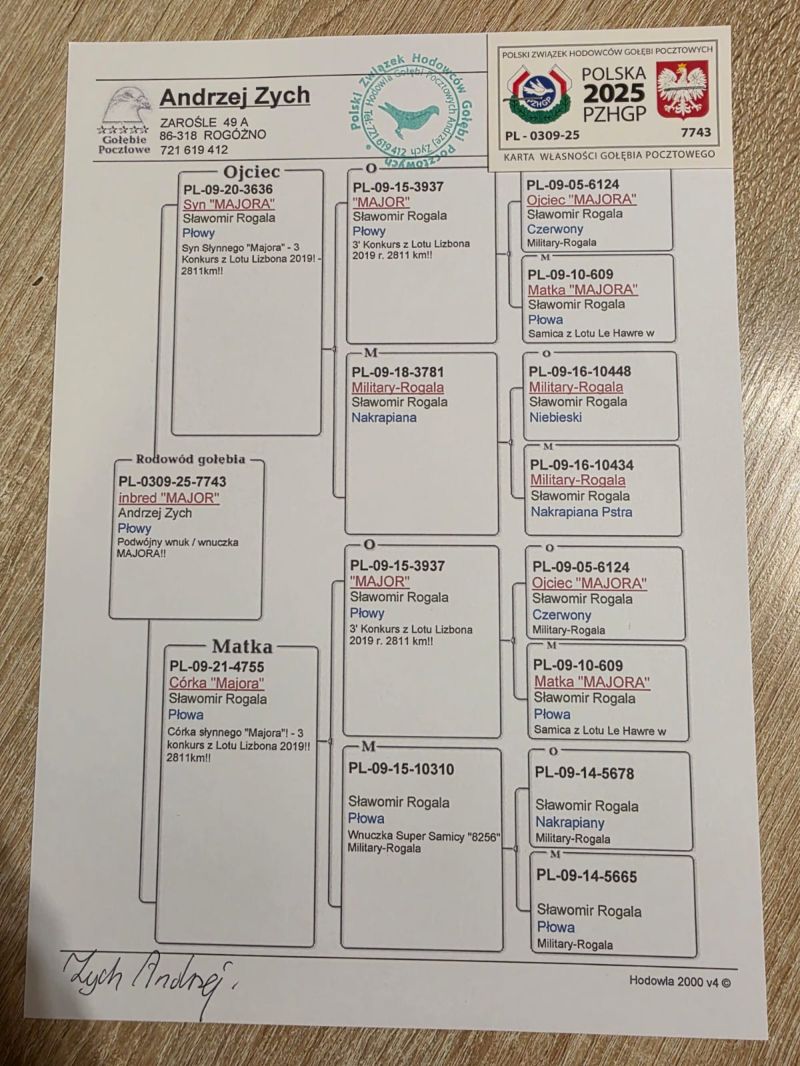 Andrzej Zych
ZAROŚLE 49 A
86-318 ROGÓŹNO
721 619 412
Gołębie
Pocztowe
Polski Związek Hodowców Gołębi Pocztowych
Hodowla Gołębi Pocztowych Andrzej Zych tel. 721 619 412
POLSKI ZWIĄZEK HODOWCÓW GOŁĘBI POCZTOWYCH
PZHGP
POLSKA
2025
PZHGP
PL - 0309-25
7743
KARTA WŁASNOŚCI GOŁĘBIA POCZTOWEGO
Rodowód gołębia
PL-0309-25-7743
inbred "MAJOR"
Andrzej Zych
Płowy
Podwójny wnuk / wnuczka
MAJORA!!
Ojciec
PL-09-20-3636
Syn "MAJORA"
Sławomir Rogala
Płowy
Syn Słynnego "Majora" - 3
Konkurs z Lotu Lizbona 2019! -
2811km!!
Matka
PL-09-21-4755
Córka "Majora"
Sławomir Rogala
Płowa
Córka słynnego "Majora"! - 3
konkurs z Lotu Lizbona 2019!!
2811km!!
O
PL-09-15-3937
"MAJOR"
Sławomir Rogala
Płowy
3' Konkurs z Lotu Lizbona
2019 r. 2811 km!!
M
PL-09-18-3781
Military-Rogala
Sławomir Rogala
Nakrapiana
O
PL-09-15-3937
"MAJOR"
Sławomir Rogala
Płowy
3' Konkurs z Lotu Lizbona
2019 r. 2811 km!!
M
PL-09-15-10310
Sławomir Rogala
Płowa
Wnuczka Super Samicy "8256"
Military-Rogala
PL-09-05-6124
Ojciec "MAJORA"
Sławomir Rogala
Czerwony
Military-Rogala
M
PL-09-10-609
Matka "MAJORA"
Sławomir Rogala
Płowa
Samica z Lotu Le Hawre w
O
PL-09-16-10448
Military-Rogala
Sławomir Rogala
Niebieski
M
PL-09-16-10434
Military-Rogala
Sławomir Rogala
Nakrapiana Pstra
O
PL-09-05-6124
Ojciec "MAJORA"
Sławomir Rogala
Czerwony
Military-Rogala
M
PL-09-10-609
Matka "MAJORA"
Sławomir Rogala
Płowa
Samica z Lotu Le Hawre w
O
PL-09-14-5678
Sławomir Rogala
Nakrapiany
Military-Rogala
M
PL-09-14-5665
Sławomir Rogala
Płowa
Military-Rogala
Zych Andrzej.
Hodowla 2000 v4 ©